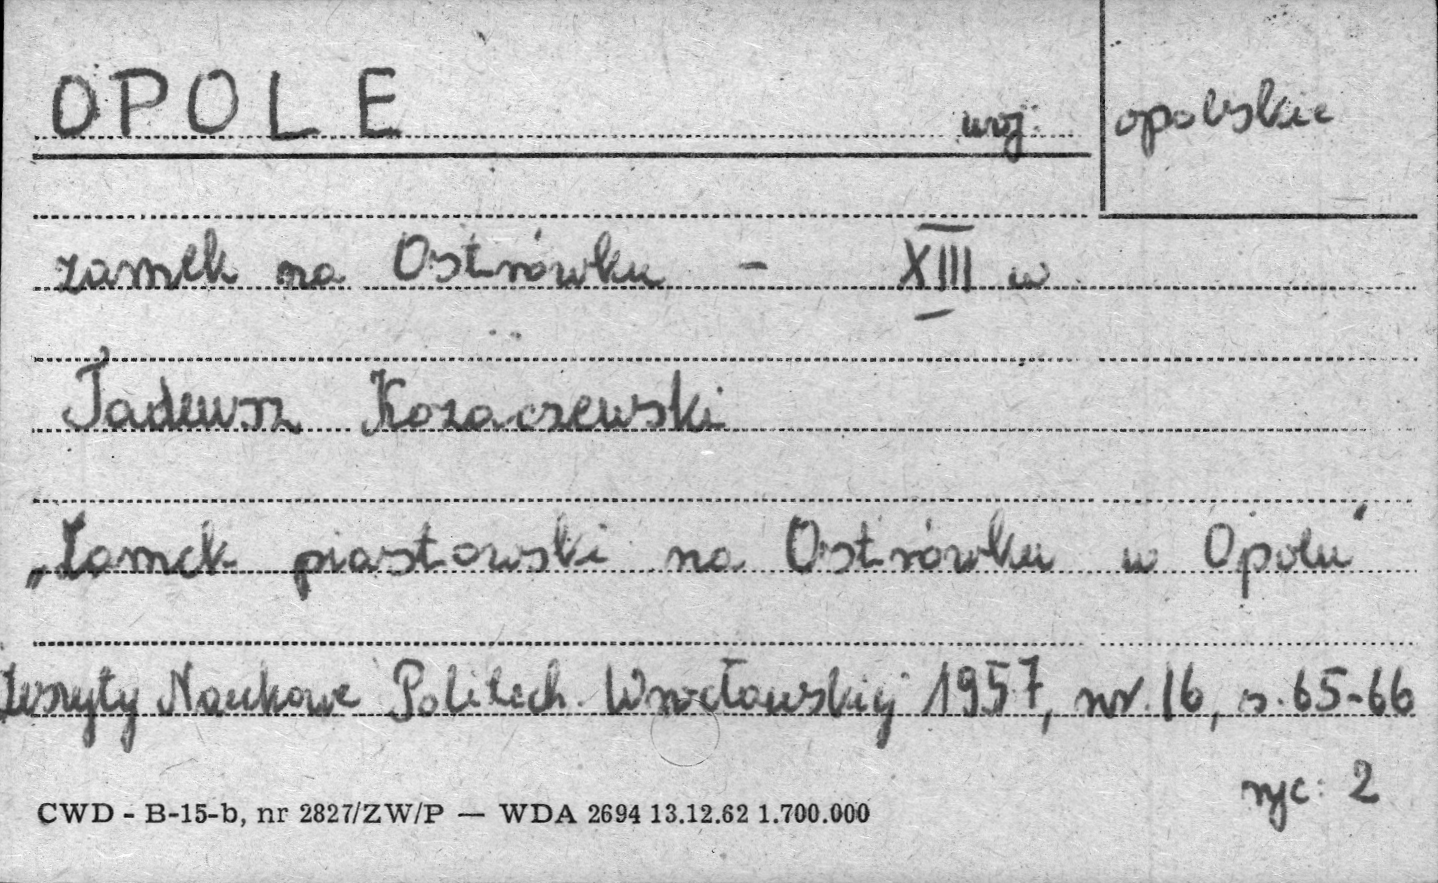 OPOLE woj. opolskie
zamek na Ostrówku - XIII w
Tadeusz Kozaczewski
„Zamek piastowski na Ostrówku w Opolu"
Zeszyty Naukowe Politech. Wrocławskiej 1957, nr. 16, s. 65-66
ryc: 2
CWD - B-15-b, nr 2827/ZW/P — WDA 2694 13.12.62 1.700.000